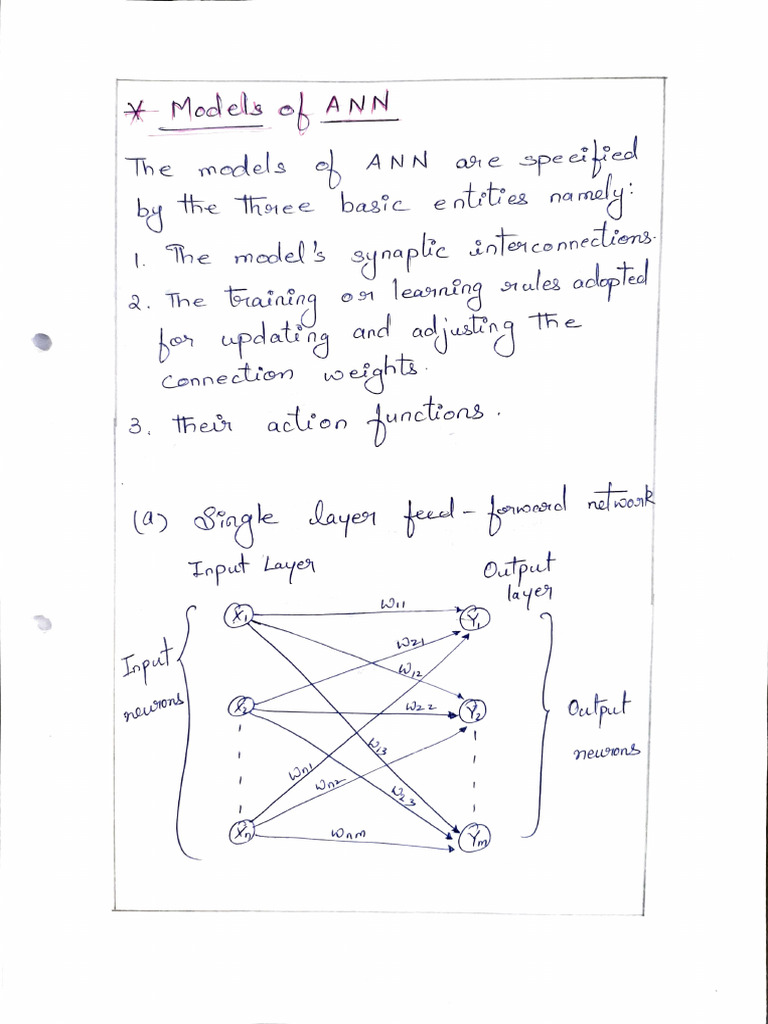 * Models of ANN
The models of ANN are specified
by the three basic entities namely:
1. The model's synaptic interconnections.
2. The training or learning rules adopted
for updating and adjusting the
connection weights.
3. Their action functions.
(a) Single layer feed-forward network
Input Layer
Output
layer
Input
neurons
X1
X2
Xn
w11
w21
w12
w22
w13
wn1
wn2
w23
wnm
Y1
Y2
Ym
Output
neurons